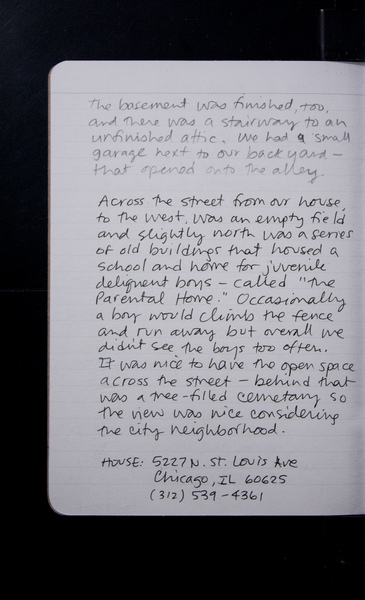 the basement was finished, too,
and there was a stairway to an
unfinished attic. We had a small
garage next to our back yard –
that opened onto the alley.
Across the street from our house,
to the west, was an empty field
and slightly north was a series
of old buildings that housed a
school and home for juvenile
deliquent boys – called "The
Parental Home." Occasionally
a boy would climb the fence
and run away but overall we
didn't see the boys too often.
It was nice to have the open space
across the street – behind that
was a tree-filled cemetary so
the view was nice considering
the city neighborhood.
HOUSE: 5227 N. St. Louis Ave
Chicago, IL 60625
(312) 539-4361